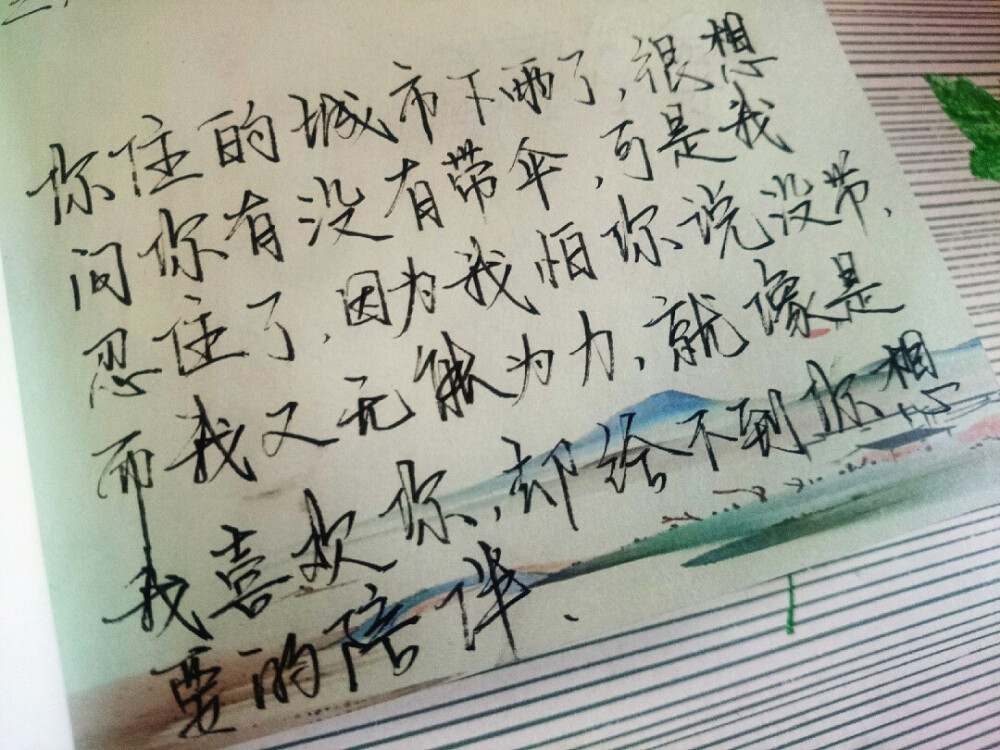 你住的城市下雨了,很想
问你有没有带伞,可是我
忍住了,因为我怕你说没带,
而我又无能为力,就像是
我喜欢你,却给不到你想
要的陪伴.